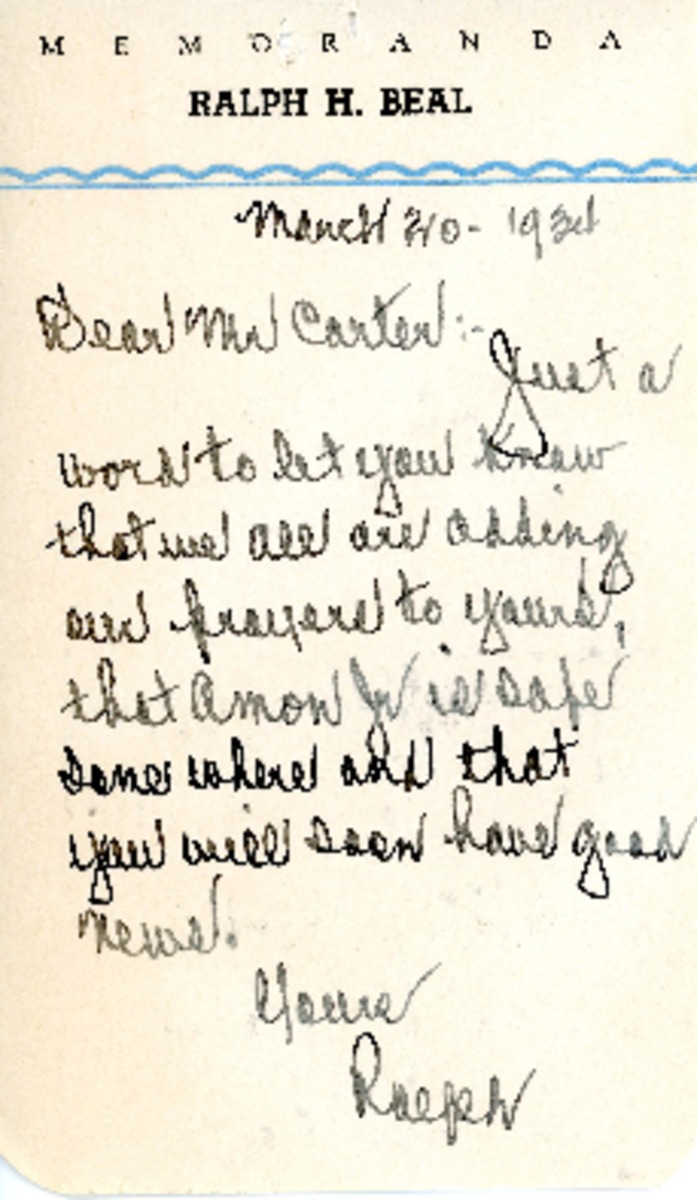 MEMORANDA
RALPH H. BEAL
March 20 -
Dear Mr Carter :-
Just a
word to let you know
that we all are adding
our prayers to yours,
that Amon Jr is safe
some where and that
you will soon have good
news.
Yours
Ralph